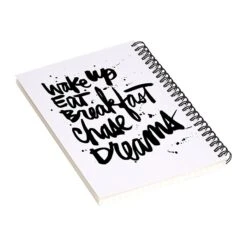 Wake up
Eat
Breakfast
Chase
Dreams